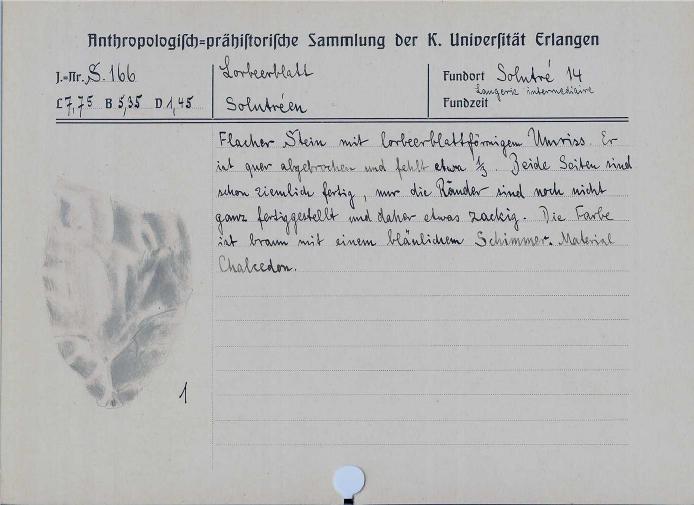 Anthropologisch=prähistorische Sammlung der K. Universität Erlangen
J.=Nr. S. 166
Lorbeerblatt
Fundort Solutré 14
Laugerie intermediaire
L 7,75 B 5,35 D 1,45
Solutréen
Fundzeit
Flacher Stein mit lorbeerblattförmigem Umriss. Er
ist quer abgebrochen und fehlt etwa 1/3. Beide Seiten sind
schon ziemlich fertig, nur die Ränder sind noch nicht
ganz fertiggestellt und daher etwas zackig. Die Farbe
ist braun mit einem bläulichem Schimmer. Material
Chalcedon.
1